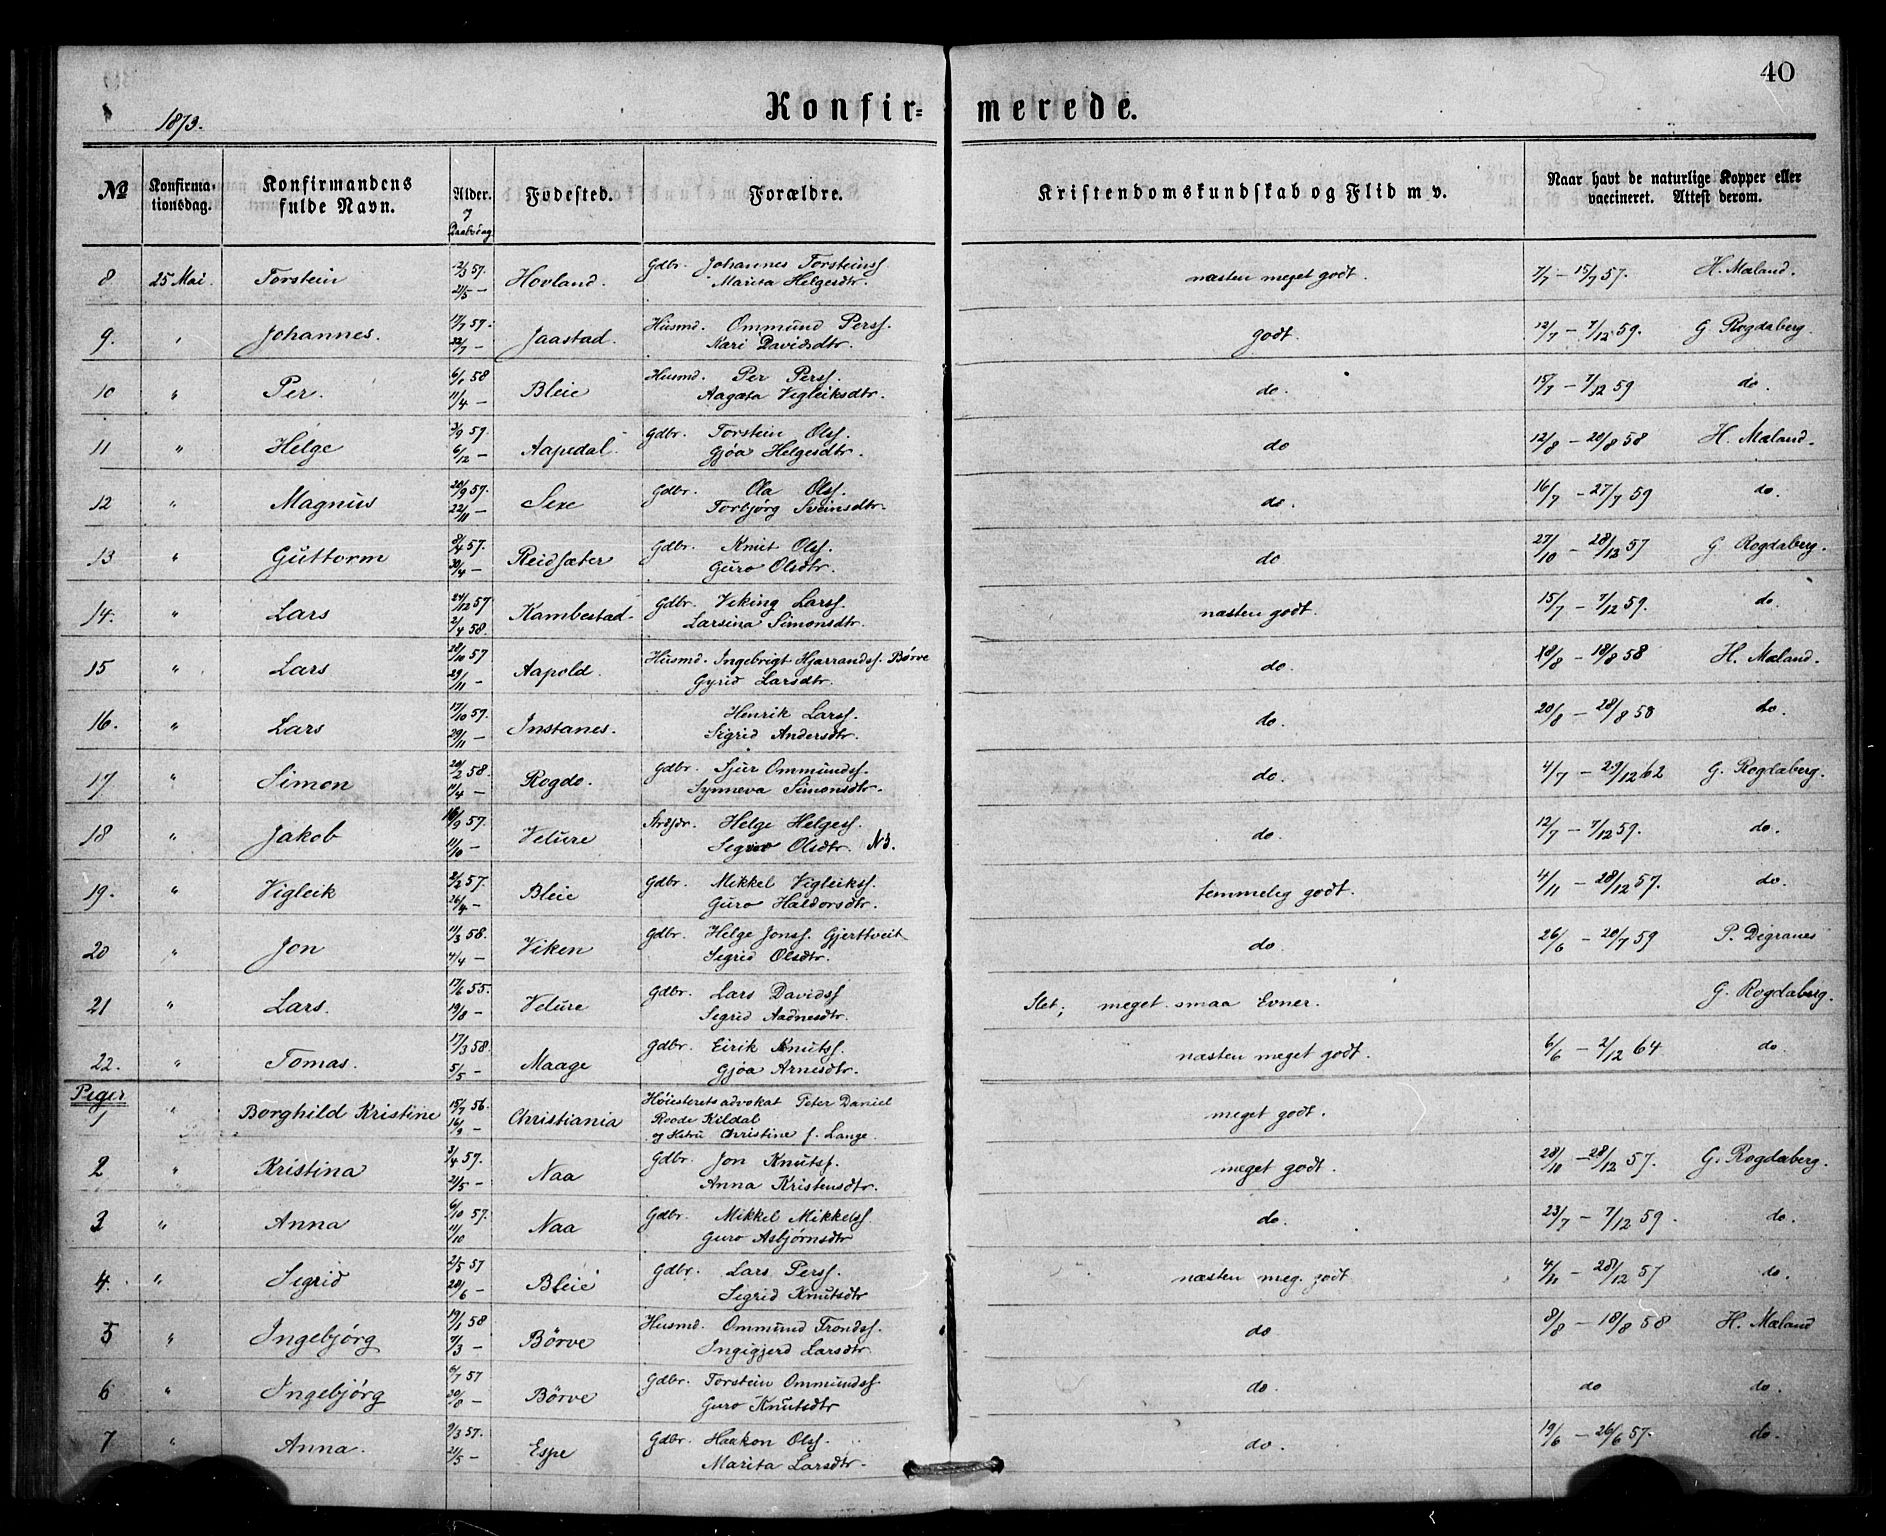 40
Konfir= merede.
1873.
№ Konfirma-tionsdag. Konfirmandens fulde Navn. Alder. Daabsdag Fødested. Forældre. Kristendomskundskab og Flid m v. Naar havt de naturlige Kopper eller vaccineret. Attest derom.
8 25 Mai. Torstein 2/3 57. 21/5 — Hovland. Gdbr. Johannes Torsteinss. Marita Helgesdtr. næsten meget godt. 7/7 — 15/7 57. H. Mæland.
9. " Johannes. 17/7 57. 22/7 — Jaastad. Husmd. Ommund Perss. Kari Davidsdtr. godt. 12/7 — 7/12 59. G Rogdaberg.
10 " Per. 6/1 58 11/4 — Bleie Husmd. Per Perss. Aagata Vigleiksdtr. do. 15/7 — 7/12 59 do.
11 " Helge 3/9 57. 6/12 — Aapedal. Gdbr. Torstein Olss. Gjøa Helgesdtr. do 12/8 — 20/8 58 H. Mæland.
12 " Magnus 20/9 57. 22/11 — Sexe Gdbr. Ola Olss. Torbjørg Sveinsdtr. do. 16/7 — 27/7 59 do.
13 " Guttorm 8/4 57. 20/4 — Reidsæter Gdbr. Knut Olss. Guro Olsdtr. do 27/10 — 28/12 57 G Rogdaberg.
14. " Lars 24/12 57 2/4 58. Kambestad. Gdbr. Viking Larss. Larsina Simonsdtr. næsten godt. 15/7 — 7/12 59. do.
15 " Lars 28/10 57 29/11 — Aapold. Husmd. Ingebrigt Hjarrands. Børve Gyrid Larsdtr. do. 28/8 — 18/8 58 H. Mæland.
16. " Lars 17/10 57. 29/11 — Instanes. Henrik Larss. Sigrid Andersdtr. do. 20/8 — 28/8 58 do.
17 " Simon 20/2 58. 11/4 — Rogde. Gdbr. Sjur Ommundss. Synneva Simonsdtr. do. 4/7 — 29/12 62 G. Rogdaberg.
18 " Jakob 16/9 57. 11/10 — Velure Helge Helgess. Sigrid Olsdtr. do. 12/7 — 7/12 59. do.
19. " Vigleik 2/2 57. 26/4 — Bleie Gdbr. Mikkel Vigleikss. Guro Haldorsdtr. temmelig godt. 4/11 — 28/12 57. do.
20 " Jon 11/3 58. 4/4 — Viken Gdbr. Helge Jonss. Gjerttveit Sigrid Olsdtr. do. 26/6 — 20/7 59 P. Digranes
21 " Lars. 17/6 55. 19/8 — Velure Gdbr. Lars Davidss Sigrid Aadnesdtr. Slet; meget smaa Evner. G. Rogdaberg.
22. " Tomas. 17/3 58. 5/5 — Maage Gdbr. Eirik Knutss. Gjøa Arnesdtr. næsten meget godt. 6/6 — 2/12 64 do.
Piger
1 " Borghild Kristine 15/7 56. 16/9 — Christiania Høiesteretsadvokat Peter Daniel Baade Kildal og Hstru Christine f. Lange. meget godt.
2 " Kristina 3/4 57. 21/5 — Naa Gdbr. Jon Knutss. Anna Kristensdtr. meget godt. 28/10 — 28/12 57. G. Rogdaberg.
3 " Anna 6/10 57. 11/10 Naa Gdbr. Mikkel Mikkelss. Guro Asbjørnsdtr do. 23/7 — 7/12 59. do.
4. " Sigrid 2/5 57 28/6 — Bleie Gdbr. Lars Perss. Sigrid Knutsdtr næsten meg. godt 4/11 — 28/12 57 do.
5 " Ingebjørg 19/1 58 7/3 — Børve Husmd. Ommund Trondss. Ingigjerd Larsdtr. do 8/8 — 18/8 58 H. Mæland
6 " Ingebjørg 6/7 57 20/8 — Børve Gdbr. Torstein Ommundss. Guro Knutsdtr do. do do.
7 " Anna. 9/3 57. 21/5 — Espe Gdbr. Haakon Olss. Marita Larsdtr. do. 19/6 — 26/6 57. do.